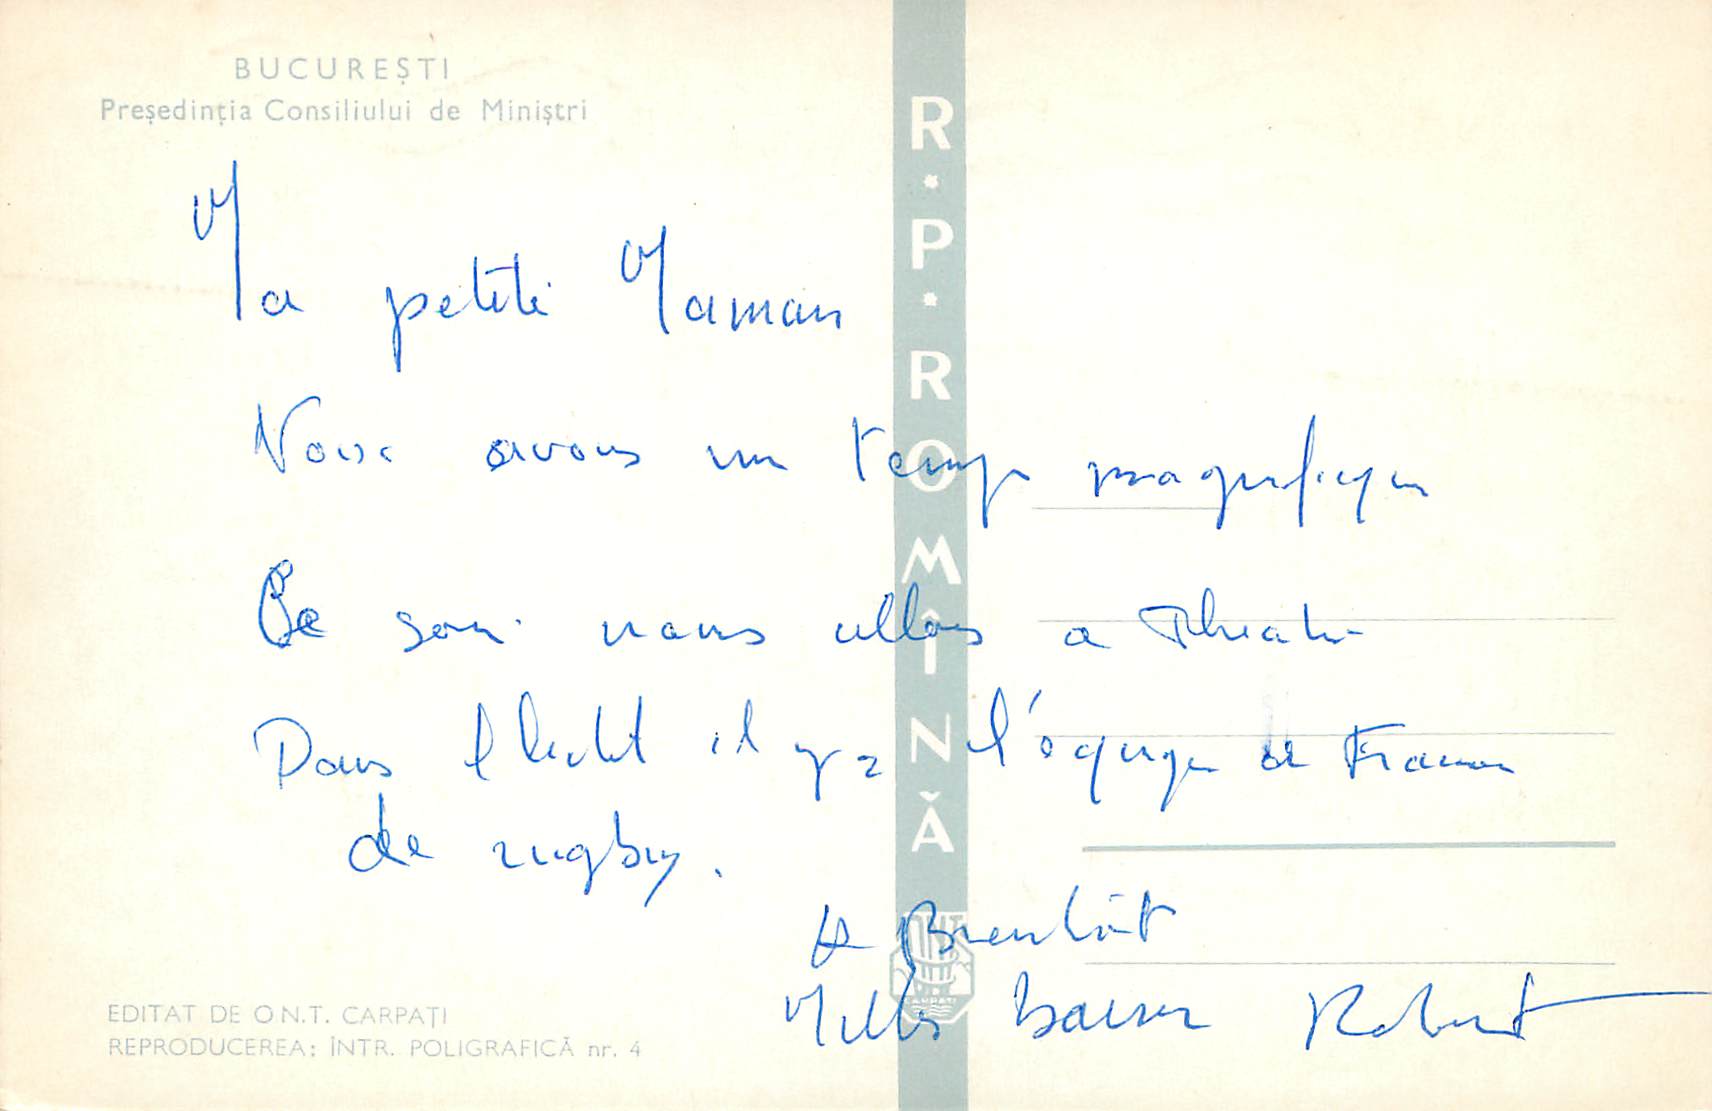 BUCUREȘTI
Președinția Consiliului de Miniștri
R·P·ROMÎNĂ
Ma petite Maman
Nous avons un temps magnifique
Ce soir nous allons a Theatre
Dans l'hotel il y a l'équipe de France
de rugby.
A Bientôt
Milles Baiser Robert
CARPAȚI
EDITAT DE O.N.T. CARPAȚI
REPRODUCEREA: ÎNTR. POLIGRAFICĂ nr. 4